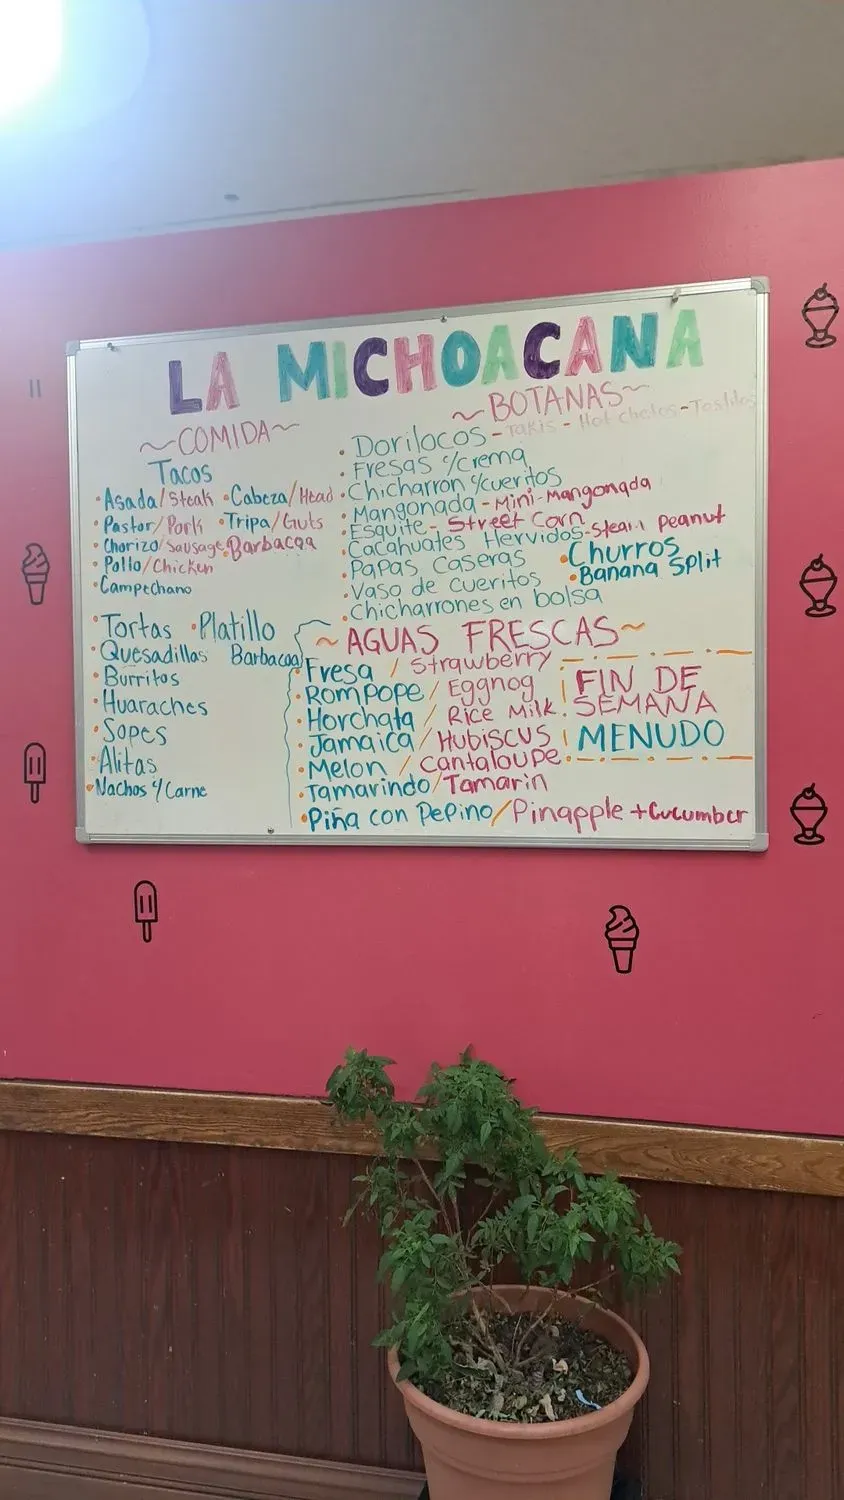 LA MICHOACANA
~COMIDA~
Tacos
• Asada/Steak • Cabeza/Head
• Pastor/Pork • Tripa/Guts
• Chorizo/Sausage • Barbacoa
• Pollo/Chicken
• Campechano
• Tortas • Platillo
• Quesadillas Barbacoa
• Burritos
• Huaraches
• Sopes
• Alitas
• Nachos c/Carne
~BOTANAS~
• Dorilocos - Takis - Hot Chetos - Tostitos
• Fresas c/crema
• Chicharron c/cueritos
• Mangonada - Mini-Mangonada
• Esquite - Street Corn
• Cacahuates Hervidos - Steam Peanut
• Papas Caseras • Churros
• Vaso de Cueritos • Banana Split
• Chicharrones en bolsa
~AGUAS FRESCAS~
• Fresa / Strawberry
• Rompope / Eggnog
• Horchata / Rice Milk
• Jamaica / Hubiscus
• Melon / Cantaloupe
• Tamarindo / Tamarin
• Piña con Pepino / Pinapple + Cucumber
FIN DE
SEMANA
MENUDO